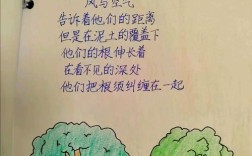 风与空气
告诉着他们的距离
但是在泥土的覆盖下
他们的根伸长着
在看不见的深处
他们把根须纠缠在一起